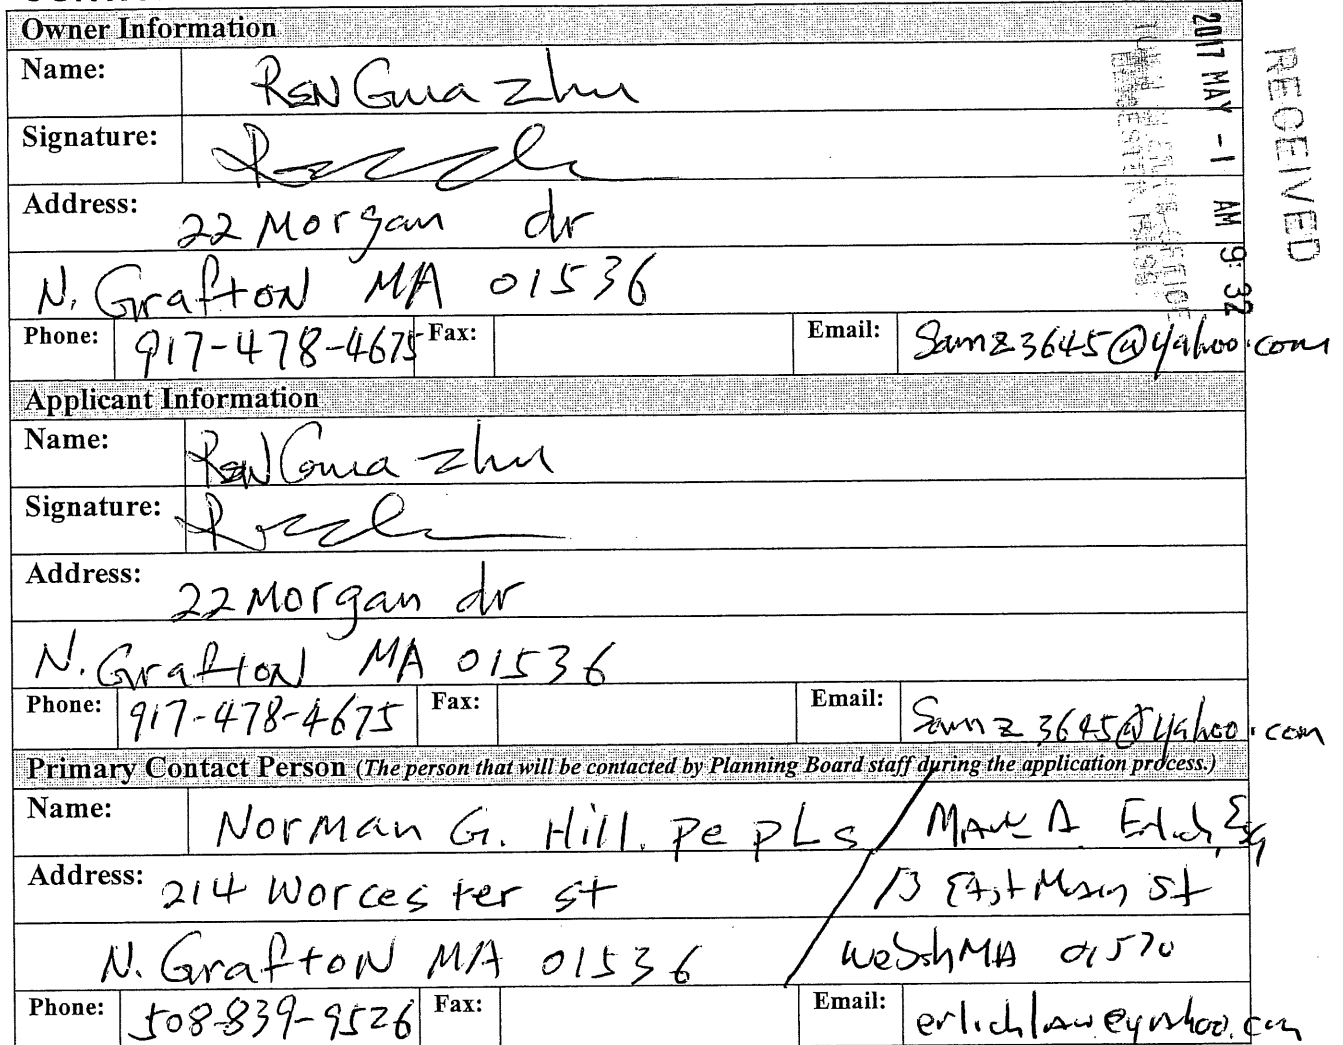 Owner Information
Name: RenGuia zhu
Signature:
Address: 22 Morgan dr
N. Grafton MA 01536
Phone: 917-478-4675 Fax: Email: Samz3645@yahoo.com
Applicant Information
Name: RenGuia zhu
Signature:
Address: 22 Morgan dr
N. Grafton MA 01536
Phone: 917-478-4675 Fax: Email: Samz3645@yahoo.com
Primary Contact Person (The person that will be contacted by Planning Board staff during the application process.)
Name: Norman G. Hill. Pe pLs / Mark A. Erlich, Esq
Address: 214 Worcester st 13 East Main St
N. Grafton MA 01536 MA 01570
Phone: 508-839-9526 Fax: Email: erlichlaw@yahoo.com
RECEIVED
2017 MAY -1 AM 9:32